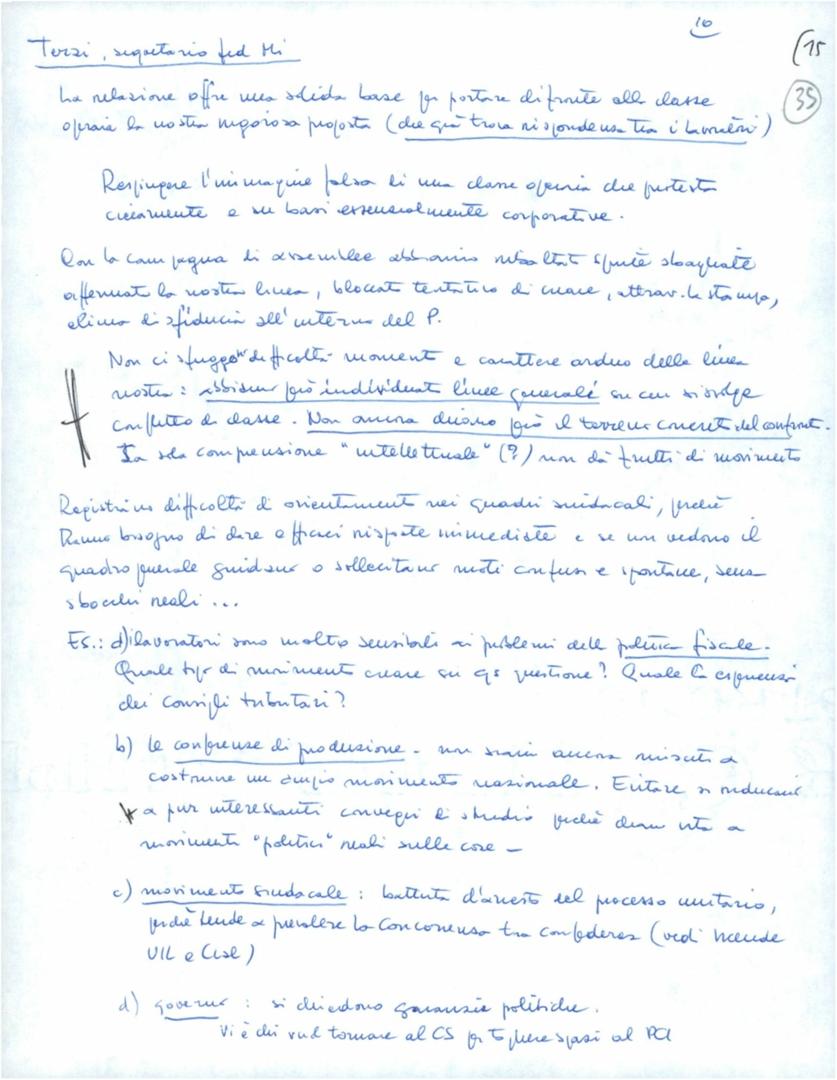 10
(15
35
Terzi, segretario fed Mi
La relazione offre una solida base per portare di fronte alla classe
operaia la nostra rigorosa proposta (che già trova rispondenza tra i lavoratori)
Respingere l'immagine falsa di una classe operaia che protesta
ciecamente e su basi essenzialmente corporative.
Con la campagna di assemblee abbiamo ribaltato spinte sbagliate
affermato la nostra linea, bloccato tentativo di creare, attrav. la stampa,
clima di sfiducia all'interno del P.
Non ci sfuggono difficoltà momento e carattere arduo della linea
nostra: abbiamo già individuato linee generali su cui si svolge
conflitto di classe. Non ancora diciamo però il terreno concreto del confronto.
La sola comprensione "intellettuale" (?) non dà frutti di movimento
Registriamo difficoltà di orientamento nei quadri sindacali, perché
hanno bisogno di dare efficaci risposte immediate e se non vedono il
quadro generale guidano o sollecitano moti confusi e spontanei, senza
sbocchi reali...
Es.: a) i lavoratori sono molto sensibili ai problemi della politica fiscale.
Quale tipo di movimento creare su qs questione? Quale la esperienza
dei consigli tributari?
b) le conferenze di produzione - non siamo ancora riusciti a
costruire un ampio movimento nazionale. Evitare si riducano
a pur interessanti convegni di studio perché diano vita a
movimenti "politici" reali sulle cose -
c) movimento sindacale: battuta d'arresto del processo unitario,
perché tende a prevalere la concorrenza tra confederaz (vedi vicende
UIL e Cisl)
d) governo: si chiedono garanzie politiche.
Vi è chi vuol tornare al CS per togliere spazi al PCI